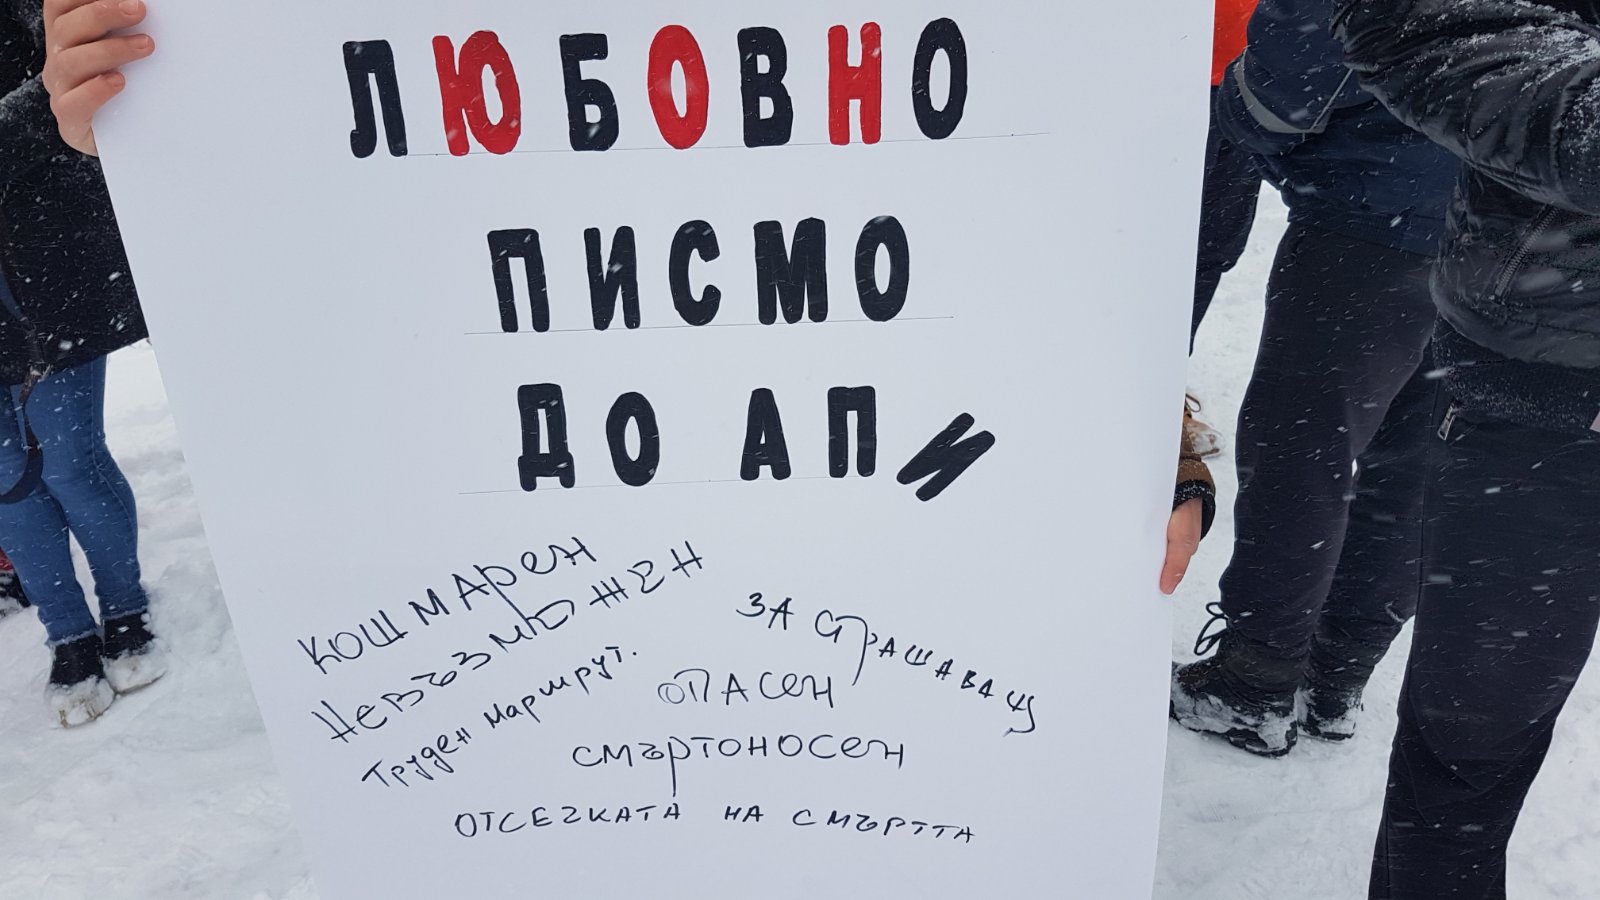 ЛЮБОВНО
ПИСМО
ДО АПИ
КОШМАРЕН
НЕВЪЗМОЖЕН
ТРУДЕН МАРШРУТ.
ЗАСТРАШАВАЩ
ОПАСЕН
СМЪРТОНОСЕН
ОТСЕЧКАТА НА СМЪРТТА